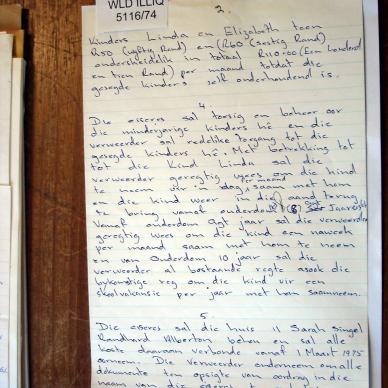 WLD ILLIQ
5116/74
2.
Kinders Linda en Elizabeth teen
R50 (vyftig Rand) en (R60 (sestig Rand)
onderskeidelik in totaal R110-00 (Een honderd
en tien Rand) per maand totdat die
gesegde kinders self onderhoudend is.
4.
Die eiseres sal toesig en beheer oor
die minderjarige kinders hê en die
verweerder sal redelike toegang tot die
gesegde kinders hê. Met betrekking tot
tot die kind Linda sal die
verweerder geregtig wees om die kind
te neem vir 'n dag per maand saam met hom
en die kind weer in die aand terug
te bring vanaf ouderdom (8)
Vanaf ouderdom agt jaar sal die verweerder
geregtig wees om die kind een naweek
per maand saam met hom te neem
en van ouderdom 10 jaar sal die
verweerder al bostaande regte asook die
bykomstige reg om die kind vir een
skoolvakansie per jaar met hom saamneem.
5.
Die eiseres sal die huis 11 Sarah Singel
Randhart Alberton behou en sal alle
koste daaraan verbonde vanaf 1 Maart 1975
oorneem. Die verweerder onderneem om alle
dokumente ten opsigte van oordrag in die
naam van die eiseres